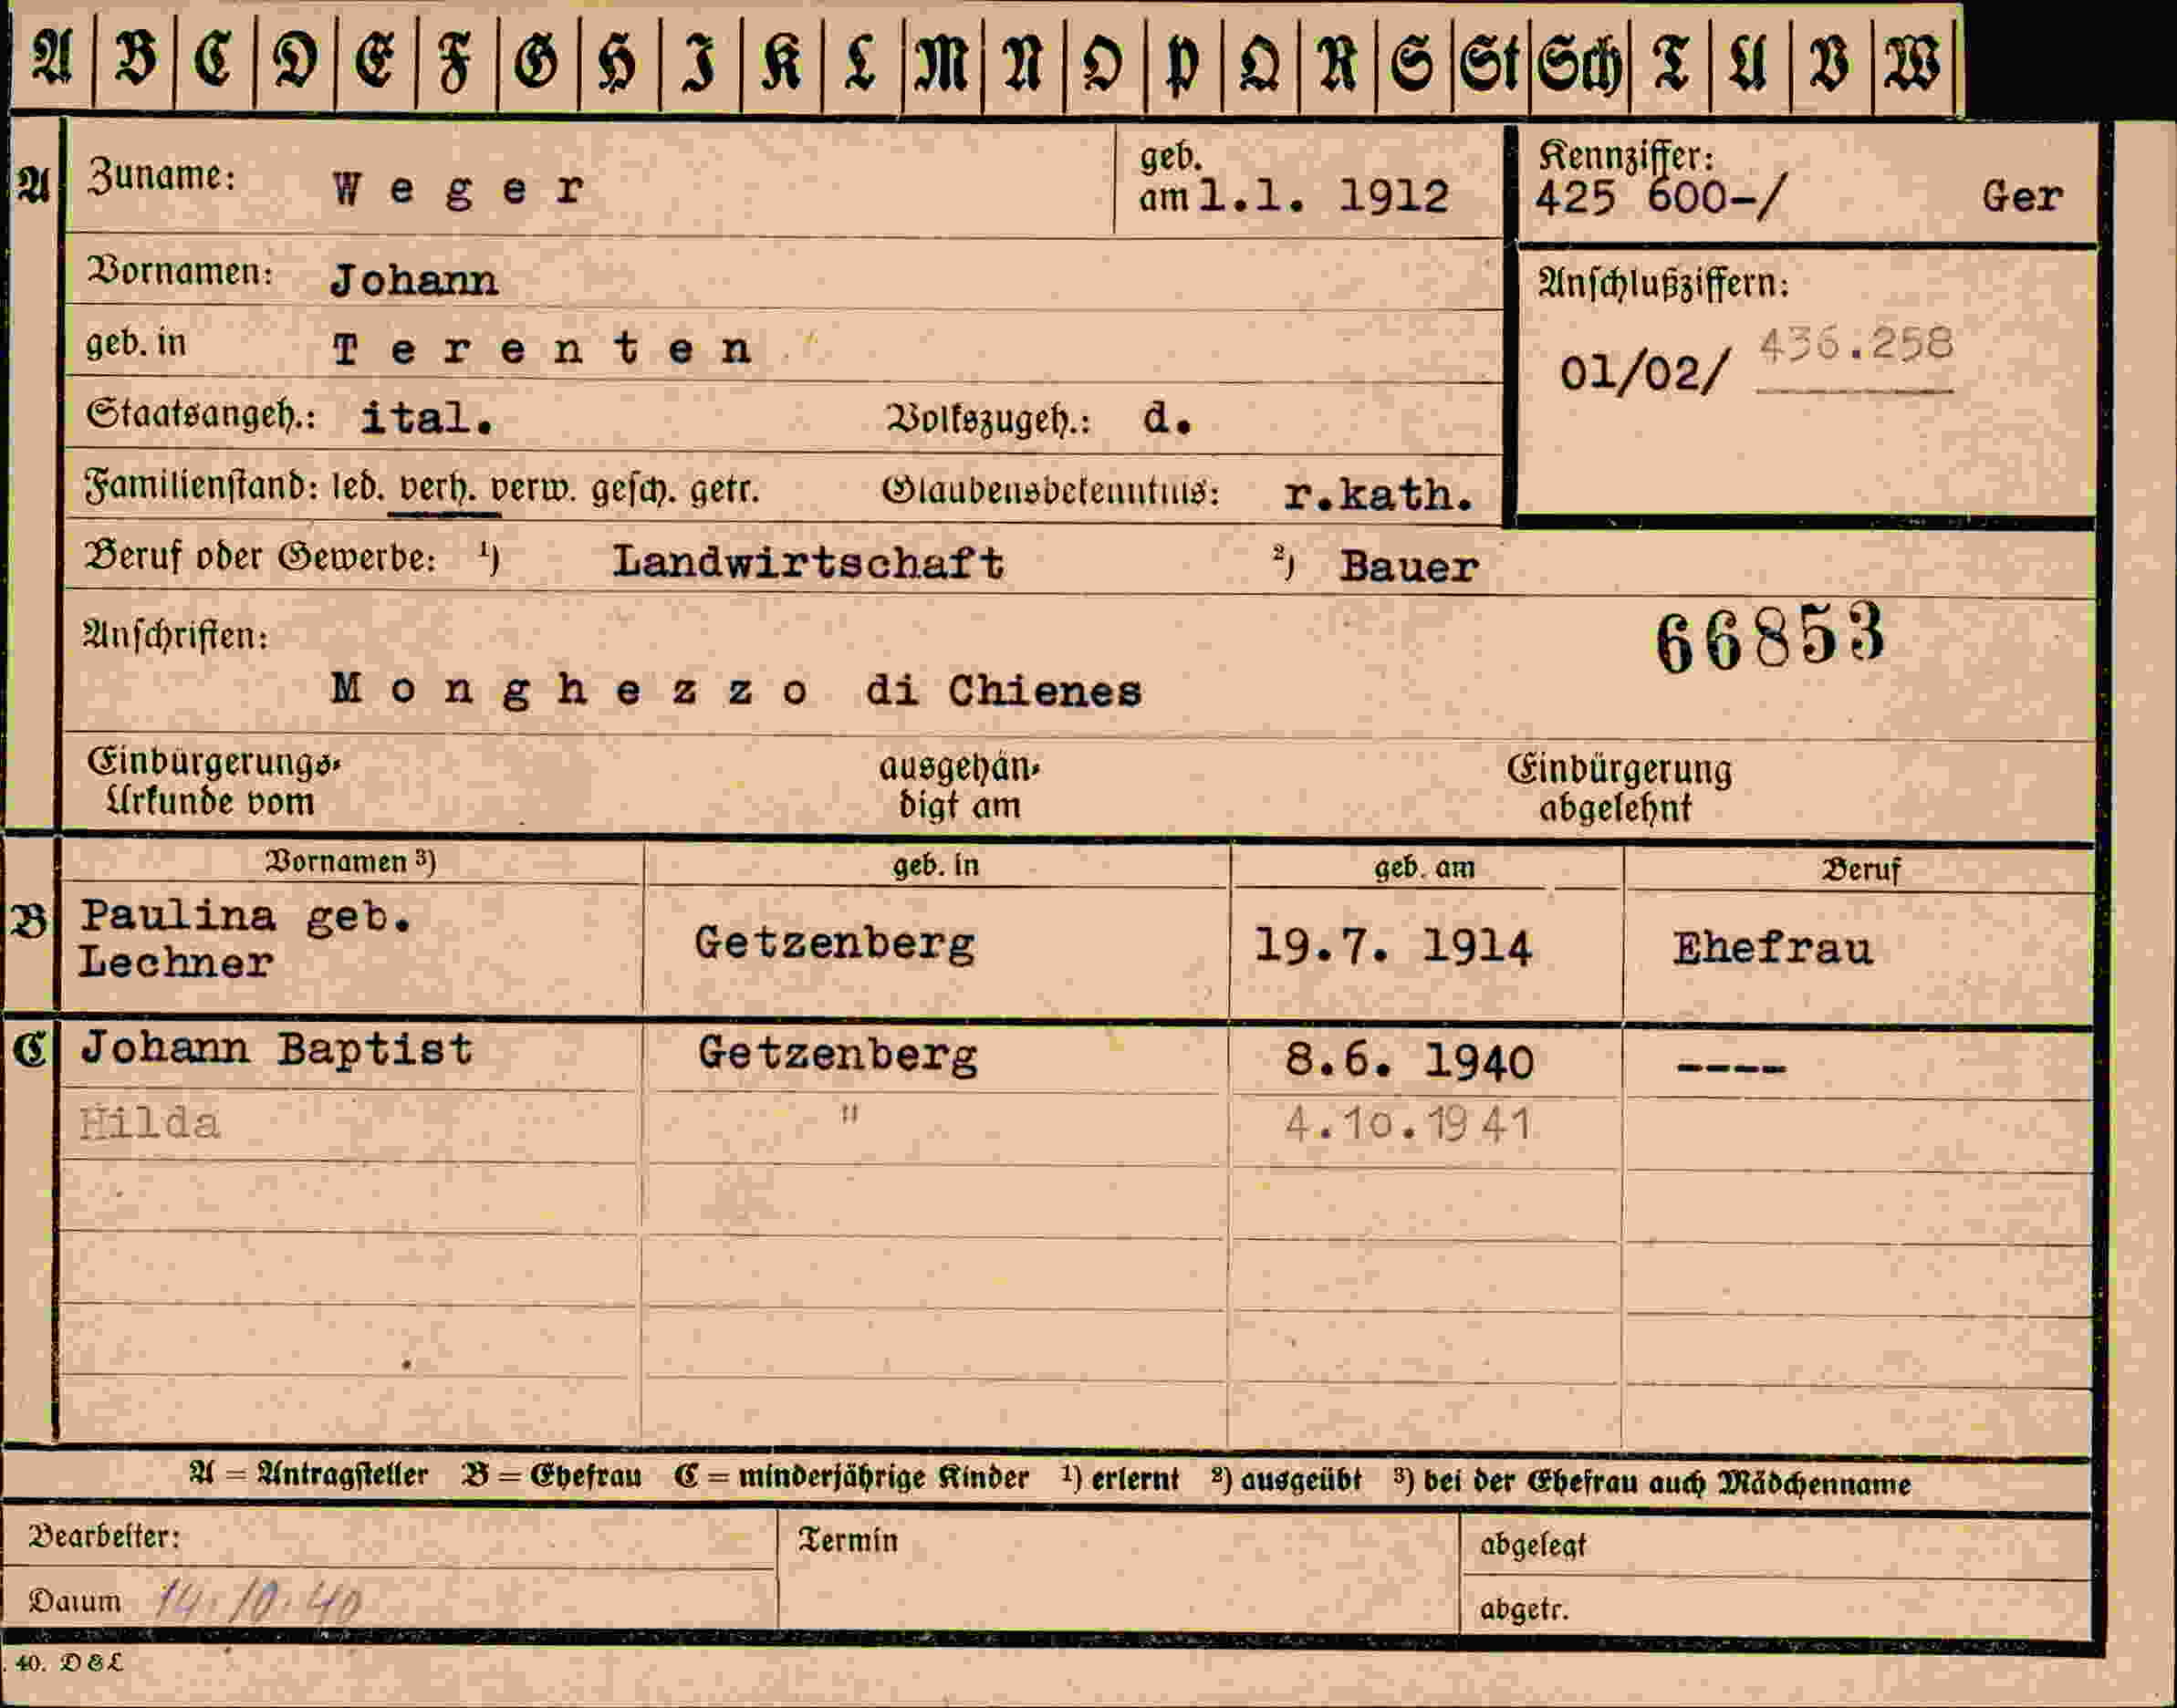 A B C D E F G H I K L M N O P Q R S St Sch T U V W
A Zuname: Weger geb. am 1.1. 1912 Kennziffer: 425 600-/ Ger
Vornamen: Johann Anschlußziffern:
geb. in Terenten 01/02/ 436.258
Staatsangeh.: ital. Volkszugeh.: d.
Familienstand: led. verh. verw. gesch. getr. Glaubensbekenntnis: r.kath.
Beruf oder Gewerbe: ¹) Landwirtschaft ²) Bauer
Anschriften: 66853
Monghezzo di Chienes
Einbürgerungs- ausgehän- Einbürgerung
Urkunde vom digt am abgelehnt
Vornamen ³) geb. in geb. am Beruf
B Paulina geb.
Lechner Getzenberg 19.7. 1914 Ehefrau
C Johann Baptist Getzenberg 8.6. 1940 ----
Hilda " 4.10.1941
A = Antragsteller B = Ehefrau C = minderjährige Kinder ¹) erlernt ²) ausgeübt ³) bei der Ehefrau auch Mädchenname
Bearbeiter: Termin abgelegt
Datum 14.10.40 abgetr.
40. D&L